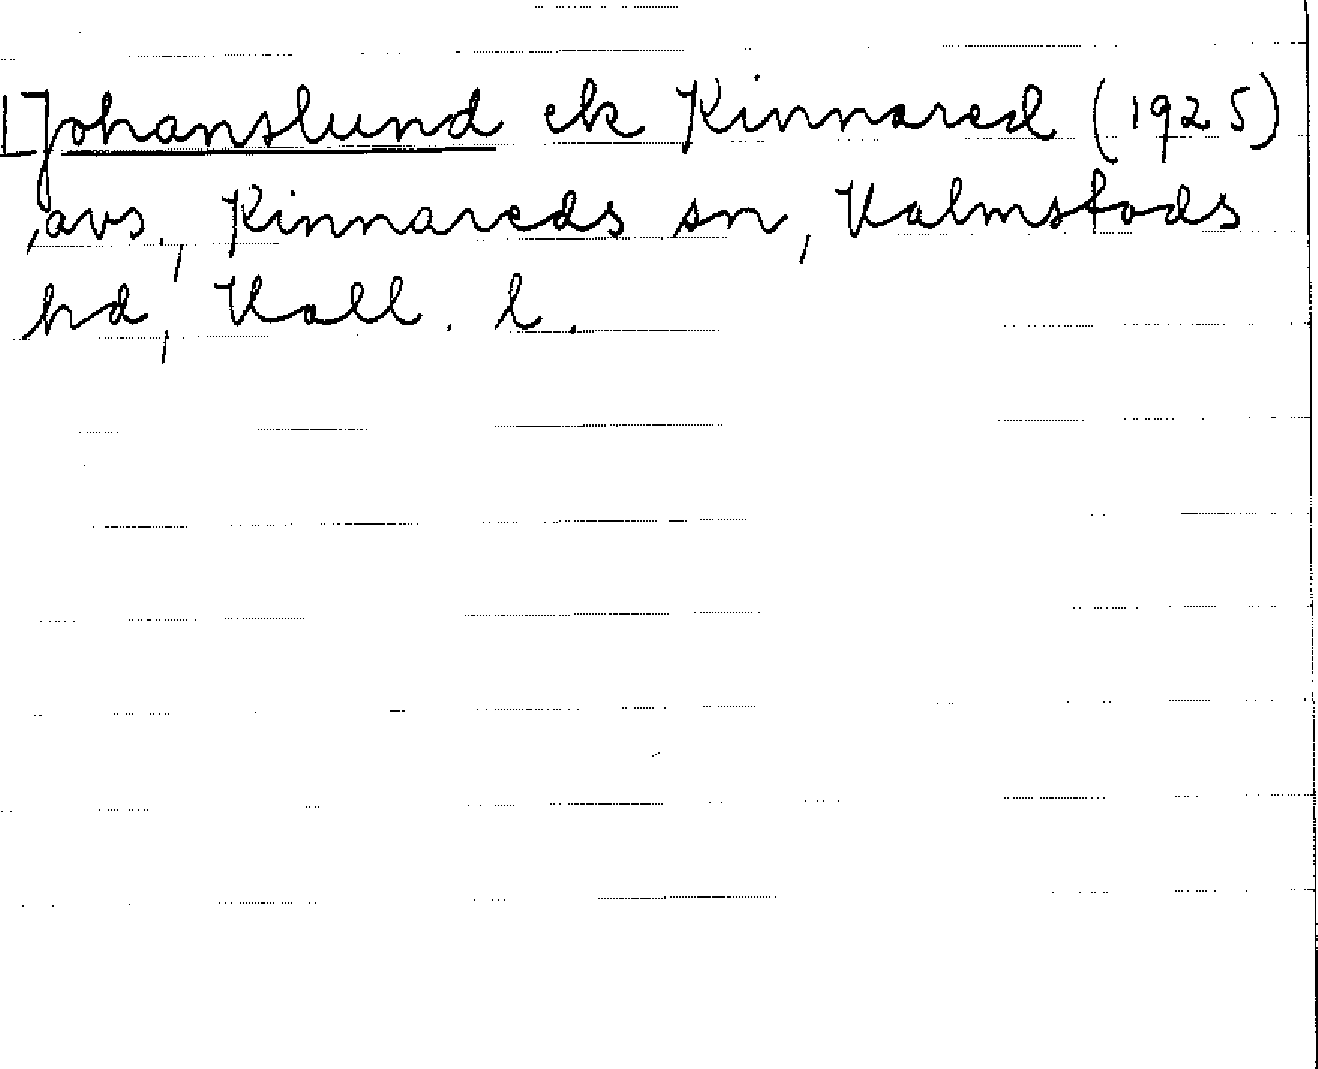 Johanslund ek Kinnared (1925)
, avs., Kinnareds sn, Halmstads
hd, Hall. l.